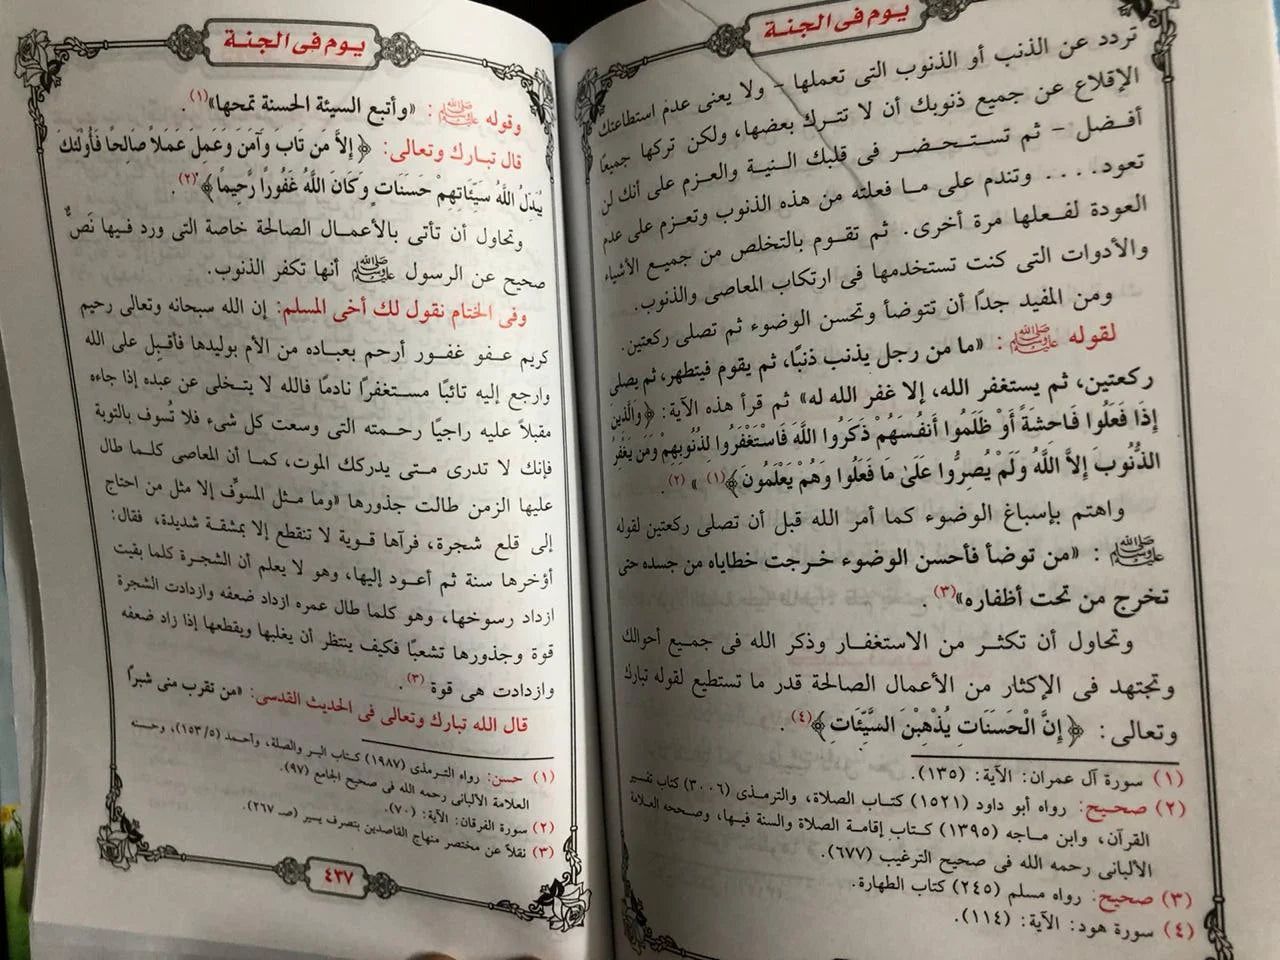 يوم فى الجنة
تردد عن الذنب أو الذنوب التى تعملها - ولا يعنى عدم استطاعتك
الإقلاع عن جميع ذنوبك أن لا تترك بعضها، ولكن تركها جميعًا
أفضل - ثم تستحضر فى قلبك النية والعزم على أنك لن
تعود.... وتندم على ما فعلته من هذه الذنوب وتعزم على عدم
العودة لفعلها مرة أخرى. ثم تقوم بالتخلص من جميع الأشياء
والأدوات التى كنت تستخدمها فى ارتكاب المعاصى والذنوب.
ومن المفيد جدًا أن تتوضأ وتحسن الوضوء ثم تصلى ركعتين.
لقوله ﷺ: «ما من رجل يذنب ذنبًا، ثم يقوم فيتطهر، ثم يصلى
ركعتين، ثم يستغفر الله، إلا غفر الله له» ثم قرأ هذه الآية: ﴿وَالَّذِينَ
إِذَا فَعَلُوا فَاحِشَةً أَوْ ظَلَمُوا أَنفُسَهُمْ ذَكَرُوا اللَّهَ فَاسْتَغْفَرُوا لِذُنُوبِهِمْ وَمَن يَغْفِرُ
الذُّنُوبَ إِلاَّ اللَّهُ وَلَمْ يُصِرُّوا عَلَىٰ مَا فَعَلُوا وَهُمْ يَعْلَمُونَ﴾(١) » (٢).
واهتم بإسباغ الوضوء كما أمر الله قبل أن تصلى ركعتين لقوله
ﷺ: «من توضأ فأحسن الوضوء خرجت خطاياه من جسده حتى
تخرج من تحت أظفاره»(٣).
وتحاول أن تكثر من الاستغفار وذكر الله فى جميع أحوالك
وتجتهد فى الإكثار من الأعمال الصالحة قدر ما تستطيع لقوله تبارك
وتعالى: ﴿إِنَّ الْحَسَنَاتِ يُذْهِبْنَ السَّيِّئَاتِ﴾(٤).
(١) سورة آل عمران: الآية: (١٣٥).
(٢) صحيح: رواه أبو داود (١٥٢١) كتاب الصلاة، والترمذى (٣٠٠٦) كتاب تفسير
القرآن، وابن ماجه (١٣٩٥) كتاب إقامة الصلاة والسنة فيها، وصححه العلامة
الألبانى رحمه الله فى صحيح الترغيب (٦٧٧).
(٣) صحيح: رواه مسلم (٢٤٥) كتاب الطهارة.
(٤) سورة هود: الآية: (١١٤).
يوم فى الجنة
وقوله ﷺ: «وأتبع السيئة الحسنة تمحها»(١).
قال تبارك وتعالى: ﴿إِلاَّ مَن تَابَ وَآمَنَ وَعَمِلَ عَمَلاً صَالِحًا فَأُوْلَئِكَ
يُبَدِّلُ اللَّهُ سَيِّئَاتِهِمْ حَسَنَاتٍ وَكَانَ اللَّهُ غَفُورًا رَّحِيمًا﴾(٢).
وتحاول أن تأتى بالأعمال الصالحة خاصة التى ورد فيها نَصٌّ
صحيح عن الرسول ﷺ أنها تكفر الذنوب.
وفى الختام نقول لك أخى المسلم: إن الله سبحانه وتعالى رحيم
كريم عفو غفور أرحم بعباده من الأم بوليدها فأقبِل على الله
وارجع إليه تائبًا مستغفرًا نادمًا فالله لا يتخلى عن عبده إذا جاءه
مقبلاً عليه راجيًا رحمته التى وسعت كل شىء فلا تُسوف بالتوبة
فإنك لا تدرى متى يدركك الموت، كما أن المعاصى كلما طال
عليها الزمن طالت جذورها «وما مثل المسوِّف إلا مثل من احتاج
إلى قلع شجرة، فرآها قوية لا تنقطع إلا بمشقة شديدة، فقال:
أؤخرها سنة ثم أعود إليها، وهو لا يعلم أن الشجرة كلما بقيت
ازداد رسوخها، وهو كلما طال عمره ازداد ضعفه وازدادت الشجرة
قوة وجذورها تشعبًا فكيف ينتظر أن يغلبها ويقطعها إذا زاد ضعفه
وازدادت هى قوة (٣).
قال الله تبارك وتعالى فى الحديث القدسى: «من تقرب منى شبرًا
(١) حسن: رواه الترمذى (١٩٨٧) كتاب البر والصلة، وأحمد (١٥٣/٥)، وحسنه
العلامة الألبانى رحمه الله فى صحيح الجامع (٩٧).
(٢) سورة الفرقان: الآية: (٧٠).
(٣) نقلاً عن مختصر منهاج القاصدين بتصرف يسير (صـ ٢٦٧).
٤٣٧